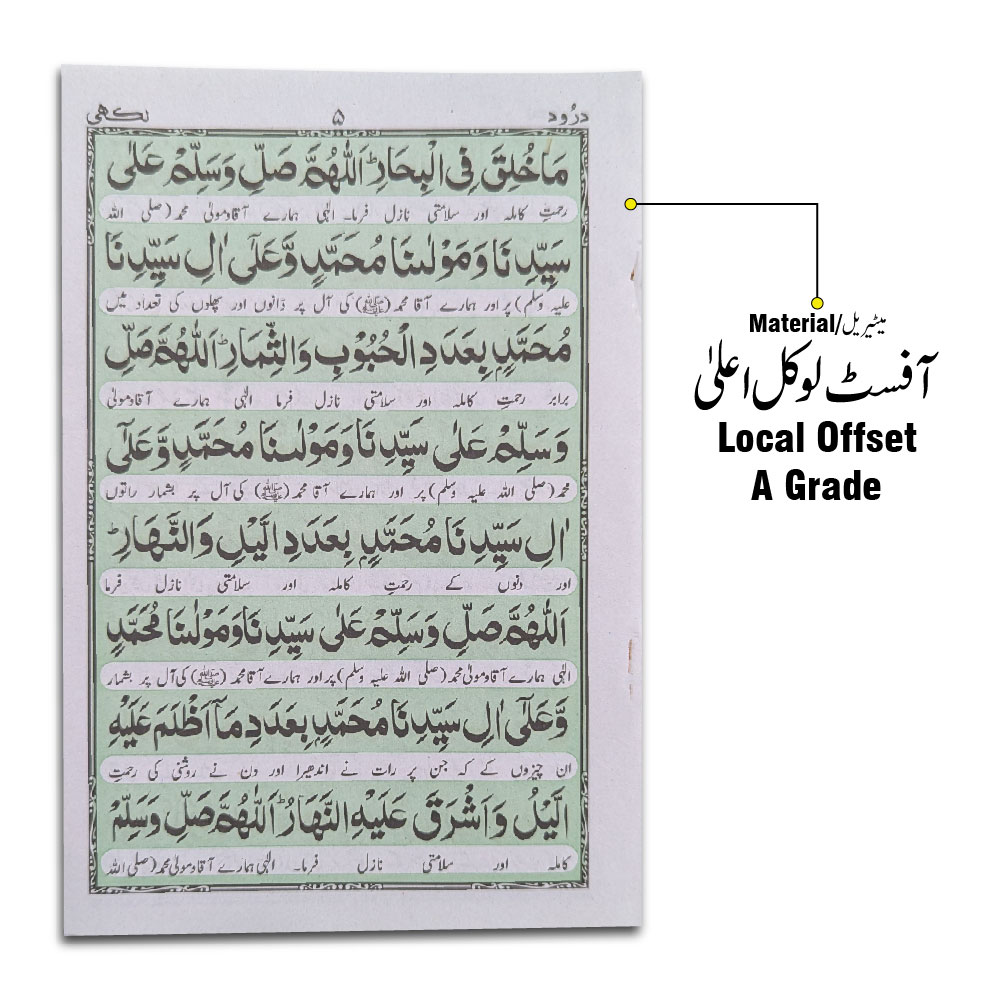 درُود ۵ لکھی
مَاخُلِقَ فِی الْبِحَارِ ؕ اَللّٰهُمَّ صَلِّ وَسَلِّمْ عَلٰی
رحمتِ کاملہ اور سلامتی نازل فرما۔ الٰہی ہمارے آقاومولیٰ محمد (صلی اللہ
سَیِّدِنَا وَمَوْلٰىنَا مُحَمَّدٍ وَّعَلٰٓی اٰلِ سَیِّدِنَا
علیہ وسلم) پر اور ہمارے آقا محمد (ﷺ) کی آل پر دانوں اور پھلوں کی تعداد میں
مُحَمَّدٍ بِعَدَدِ الْحُبُوْبِ وَالثِّمَارِ ؕ اَللّٰهُمَّ صَلِّ
برابر رحمتِ کاملہ اور سلامتی نازل فرما الٰہی ہمارے آقاومولیٰ
وَسَلِّمْ عَلٰی سَیِّدِنَا وَمَوْلٰىنَا مُحَمَّدٍ وَّعَلٰٓی
محمد (صلی اللہ علیہ وسلم) پر اور ہمارے آقا محمد (ﷺ) کی آل پر بشمار راتوں
اٰلِ سَیِّدِنَا مُحَمَّدٍ بِعَدَدِ الَّیْلِ وَالنَّهَارِ ؕ
اور دنوں کے رحمتِ کاملہ اور سلامتی نازل فرما
اَللّٰهُمَّ صَلِّ وَسَلِّمْ عَلٰی سَیِّدِنَا وَمَوْلٰىنَا مُحَمَّدٍ
الٰہی ہمارے آقاومولیٰ محمد (صلی اللہ علیہ وسلم) پر اور ہمارے آقا محمد (ﷺ) کی آل پر بشمار
وَّعَلٰٓی اٰلِ سَیِّدِنَا مُحَمَّدٍ بِعَدَدِ مَآ اَظْلَمَ عَلَیْهِ
ان چیزوں کے کہ جن پر رات نے اندھیرا اور دن نے روشنی کی رحمتِ
الَّیْلُ وَاَشْرَقَ عَلَیْهِ النَّهَارُ ؕ اَللّٰهُمَّ صَلِّ وَسَلِّمْ
کاملہ اور سلامتی نازل فرما۔ الٰہی ہمارے آقاومولیٰ محمد (صلی اللہ
Material/میٹیریل
آفسٹ لوکل اعلیٰ
Local Offset
A Grade